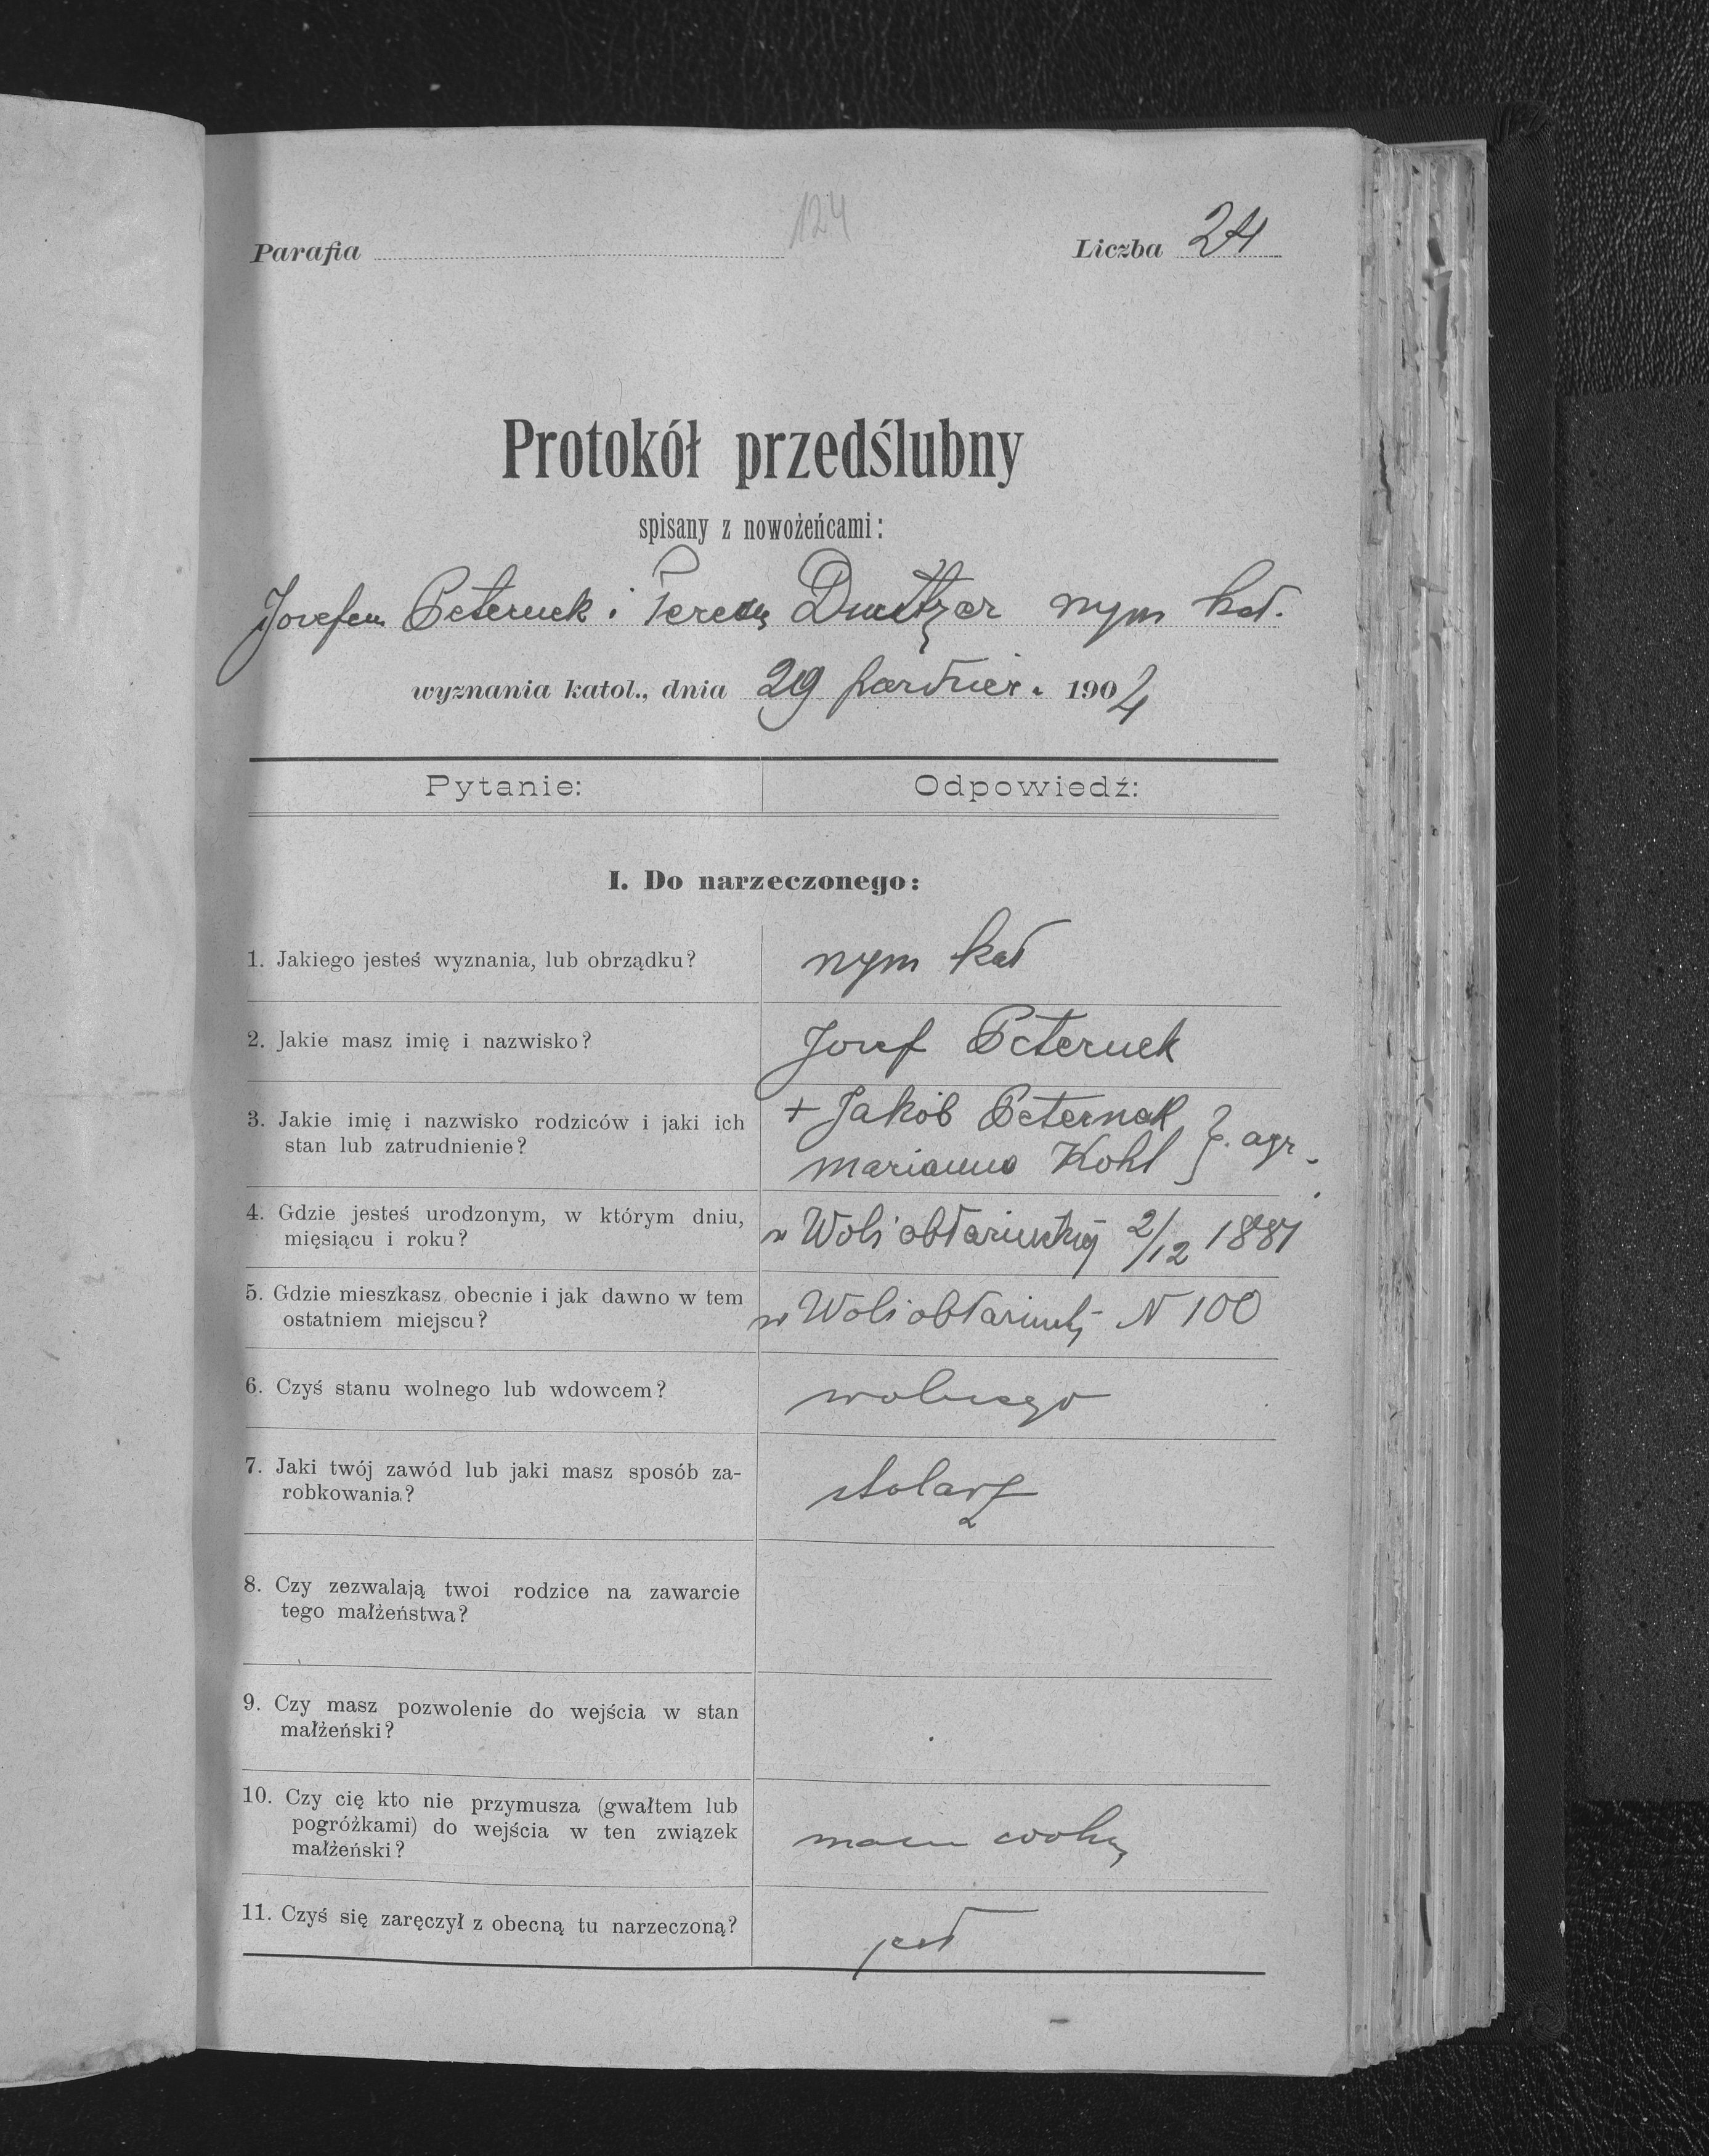 124
Parafia
Liczba 24
Protokół przedślubny
spisany z nowożeńcami:
Jozefem Peternek i Teresą rzym kat.
wyznania katol., dnia 29 paździer. 1904
Pytanie: Odpowiedź:
I. Do narzeczonego:
1. Jakiego jesteś wyznania, lub obrządku? rzym kat
2. Jakie masz imię i nazwisko? Jozef Peternek
3. Jakie imię i nazwisko rodziców i jaki ich + Jakób Peternek
stan lub zatrudnienie? Marianna Kohl } agr.
4. Gdzie jesteś urodzonym, w którym dniu, w Woli 2/12 1881
mięsiącu i roku?
5. Gdzie mieszkasz obecnie i jak dawno w tem w Woli N 100
ostatniem miejscu?
6. Czyś stanu wolnego lub wdowcem? wolnego
7. Jaki twój zawód lub jaki masz sposób za- stolarz
robkowania?
8. Czy zezwalają twoi rodzice na zawarcie
tego małżeństwa?
9. Czy masz pozwolenie do wejścia w stan
małżeński?
10. Czy cię kto nie przymusza (gwałtem lub
pogróżkami) do wejścia w ten związek mam wolną
małżeński?
11. Czyś się zaręczył z obecną tu narzeczoną? jest